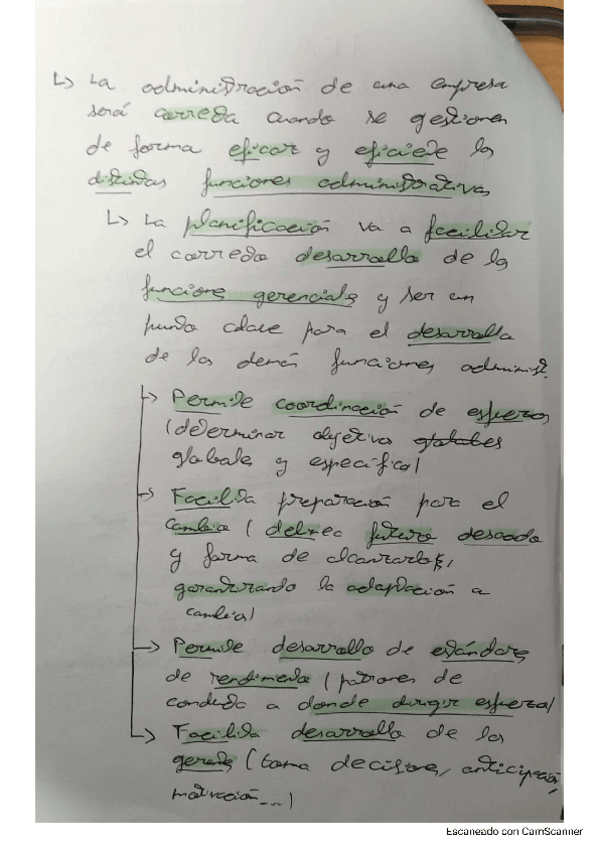 ↳ La administración de una empresa
será correcta cuando se gestionen
de forma eficaz y eficiente las
distintas funciones administrativas
↳ La planificación va a facilitar
el correcto desarrollo de las
funciones gerenciales y ser un
punto clave para el desarrollo
de las demás funciones administ.
→ Permite coordinación de esfuerzos
(determinar objetivos globales
globales y específicos)
→ Facilita preparación para el
cambio ( futuro deseado
y forma de alcanzarlos,
garantizando la adaptación a
cambios)
→ Permite desarrollo de estándares
de rendimiento (patrones de
conducta a donde dirigir esfuerzos)
→ Facilita desarrollo de los
gerentes (toma decisiones, anticipación,
motivación...)
Escaneado con CamScanner